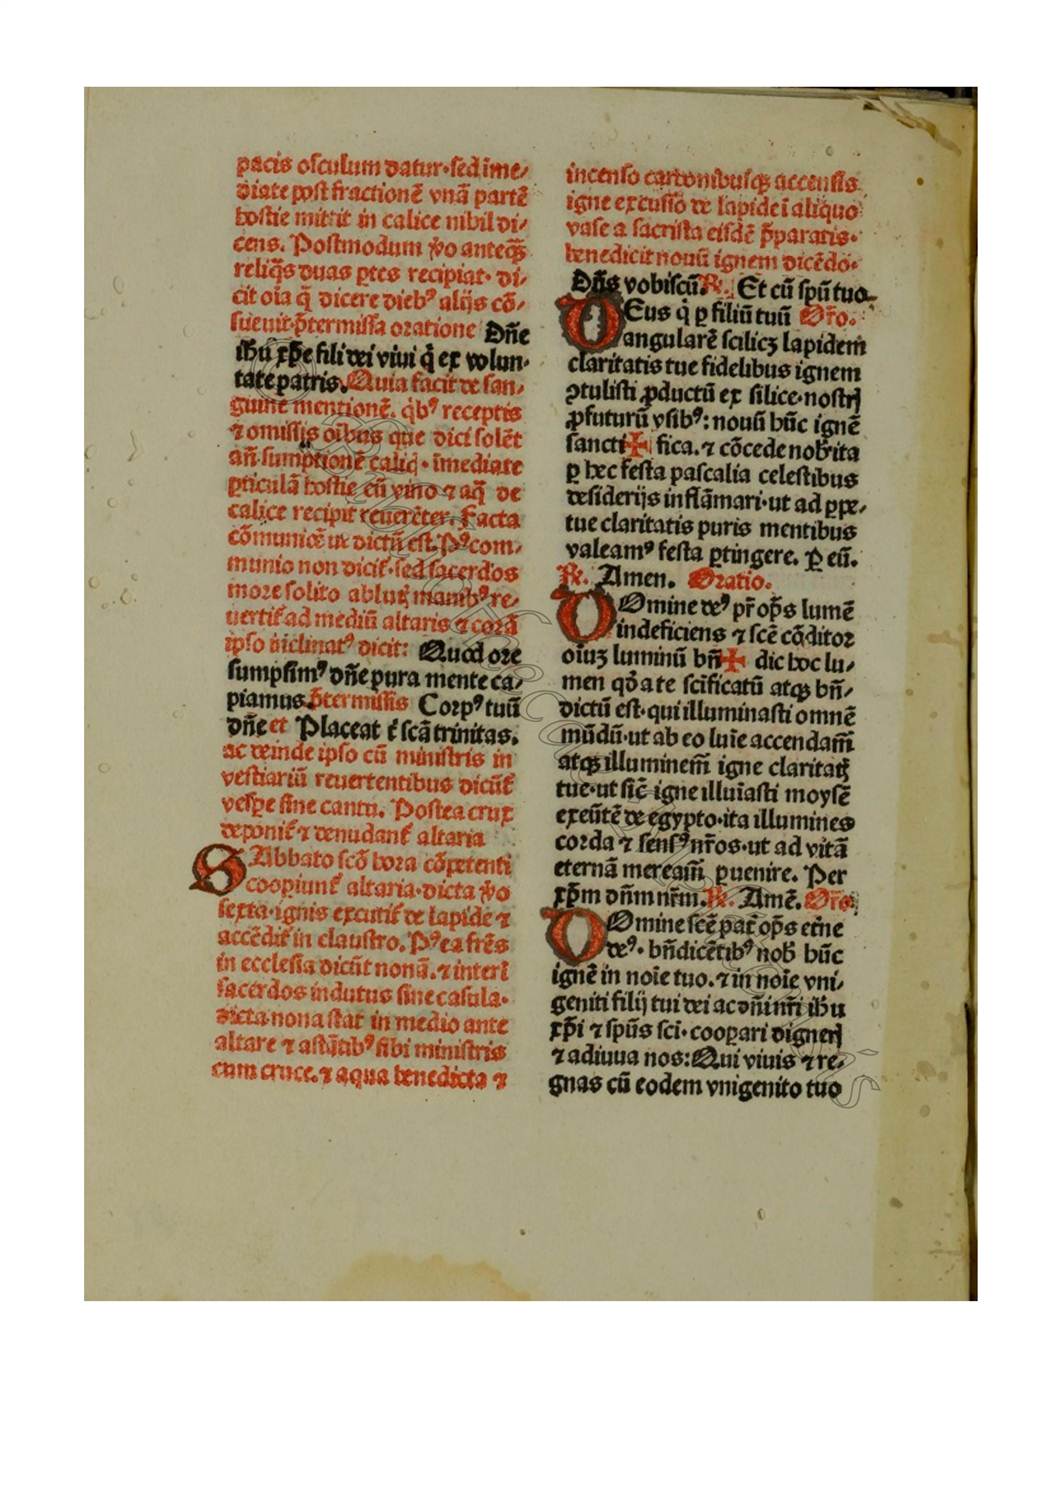 pacis osculum datur·sed īme⸗
diate post fractionē vnā partē
hostie mittit in calice nihil di⸗
cens. Postmodum ꝟo anteqꝫ̄
reliq̄s duas ꝑtes recipiat· di⸗
cit oīa q̄ dicere dieb⁹ alijs cō⸗
sueuit·p̄termissa oratione Dn̄e
ihū xp̄e fili dei viui q̇ ex volun⸗
tate patris. Quia facit de san⸗
guine mentionē. q̇b⁹ receptis
⁊ omissis oībus que dici solēt
an̄ sumptionē calicꝭ· īmediate
ꝑticulā hostie cū vino ⁊ aq̄ de
calice recipit reuerēter. Facta
cōmuniōe vt dictū est. P⁹com⸗
munio non dicit᷑·sed sacerdos
more solito ablutꝭ manib⁹ re⸗
uertit᷑ ad mediū altaris ⁊ corā
ipso inclinat⁹ dicit: Quod ore
sumpsim⁹ dn̄e pura mente ca⸗
piamus. p̄termissis Corp⁹ tuū
dn̄e et Placeat t᷑ scā trinitas.
ac deinde ipso cū ministris in
vestiariū reuertentibus dicūt᷑
vesꝑe sine cantu. Postea crux
deponit᷑ ⁊ denudant᷑ altaria
SAbbato scō hora cōpetenti
cooꝑiunt᷑ altaria·dicta ꝟo
sexta·ignis excutit᷑ de lapide ⁊
accēdit᷑ in claustro. P⁹ea frēs
in ecclesia dicūt nonā.⁊ interī
sacerdos indutus sine casula·
dicta nona stat in medio ante
altare ⁊ astātib⁹ sibi ministris
cum cruce.⁊ aqua benedicta ⁊
incenso carbonibusqꝫ accensis
igne excusso de lapide ī aliquo
vase a sacrista eisdē p̄paratis·
benedicit nouū ignem dicēdo·
Dn̄s vobiscū. ℟. Et cū spū tuo.
DEus q̇ ꝑ filiū tuū Or̄o.
angularē scilicꝫ lapidem
claritatis tue fidelibus ignem
ꝯtulisti ꝓductū ex silice·nostrꝭ
ꝓfuturū vsib⁹: nouū hūc ignē
sancti✠ fica.⁊ cōcede nob᷑ ita
ꝑ hec festa pascalia celestibus
desiderijs inflāmari·ut ad ꝑpe⸗
tue claritatis puris mentibus
valeam⁹ festa ꝑtingere. Ꝑ eū.
℟. Amen. Oratio.
DOmine de⁹ pr̄ op̄s lumē
indeficiens ⁊ scē cōditor
oīuꝫ luminū bn̄✠ dic hoc lu⸗
men qd̄ a te scīficatū atqꝫ bn̄⸗
dictū est·qui illuminasti omnē
mūdū·ut ab eo luīe accendam̄
atqꝫ illuminem̄ igne claritatꝭ
tue·ut sic̄ igne illuīasti moysē
exeūtē de egypto·ita illumines
corda ⁊ sens⁹ nr̄os·ut ad vitā
eternā meream̄ ꝑuenire. Per
xp̄m dn̄m nr̄m. ℟. Amē. Or̄o
DOmine scē pat᷑ op̄s et̄ne
de⁹· bn̄dicētib⁹ nob᷑ hūc
ignē in noīe tuo.⁊ in noīe vni⸗
geniti filij tui dei ac dn̄i nr̄i ihū
xp̄i ⁊ spūs sci·cooꝑari dignerꝭ
⁊ adiuua nos: Qui viuis ⁊ re⸗
gnas cū eodem vnigenito tuo